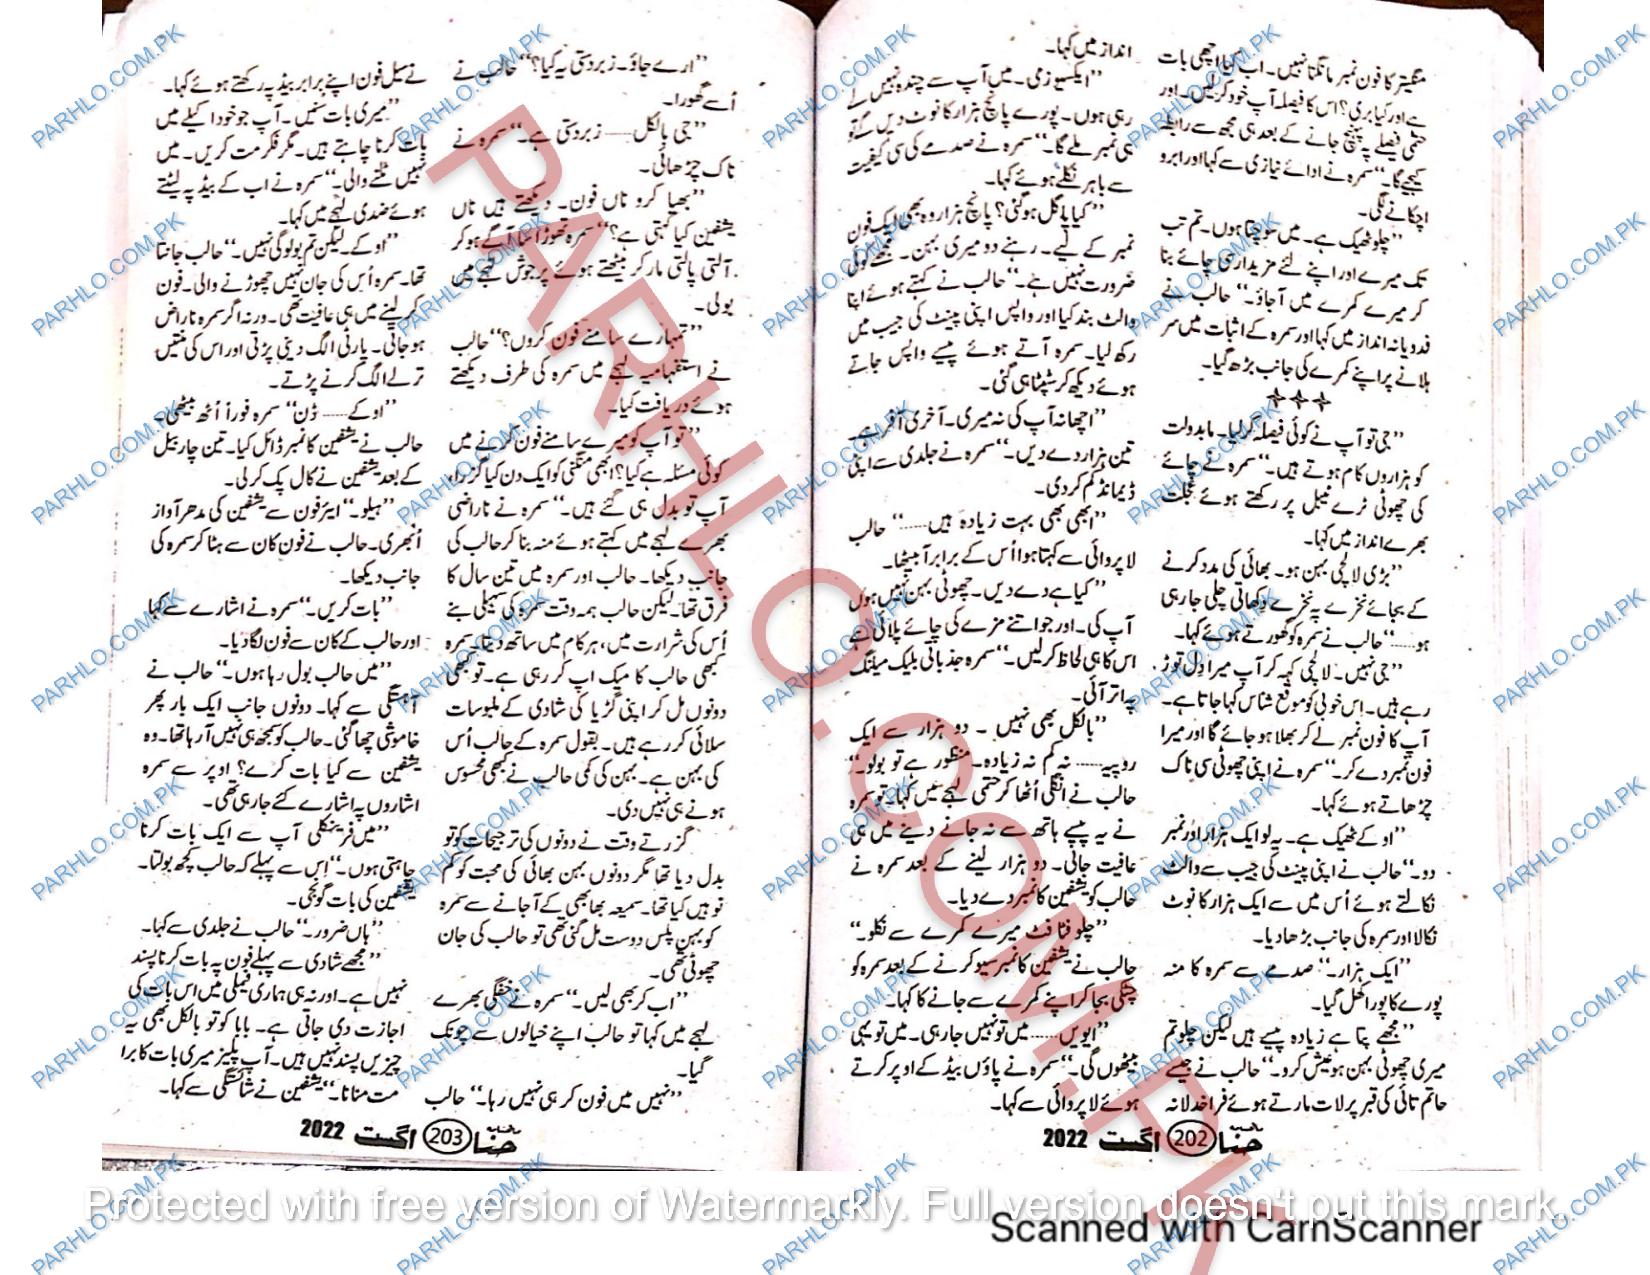 منگیتر کا فون نمبر مانگتا نہیں۔ اب اس اچھی بات
ہے اور کیا بری؟ اس کا فیصلہ آپ خود کر لیں۔ اور
حتمی فیصلے پہ پہنچ جانے کے بعد ہی مجھ سے رابطہ
کیجیے گا۔“ سمرہ نے ادائے نیازی سے کہا اور ابرو
اچکانے لگی۔
”چلو ٹھیک ہے۔ میں سوچتا ہوں۔ تم تب
تک میرے اور اپنے لئے مزیداری چائے بنا
کر میرے کمرے میں آجاؤ۔“ حالب نے
فدویانہ انداز میں کہا اور سمرہ کے اثبات میں سر
ہلانے پر اپنے کمرے کی جانب بڑھ گیا۔
”جی تو آپ نے کوئی فیصلہ کر لیا۔ مابدولت
کو ہزاروں کام ہوتے ہیں۔“ سمرہ نے چائے
کی چھوٹی ٹرے ٹیبل پر رکھتے ہوئے عجلت
بھرے انداز میں کہا۔
”بڑی لالچی بہن ہو۔ بھائی کی مدد کرنے
کے بجائے نخرے پہ نخرے دکھاتی چلی جا رہی
ہو......“ حالب نے سمرہ کو گھورتے ہوئے کہا۔
”جی نہیں۔ لالچی کہہ کر آپ میرا دل توڑ
رہے ہیں۔ اس خوبی کو موقع شناس کہا جاتا ہے۔
آپ کا فون نمبر لے کر بھلا ہو جائے گا اور میرا
فون نمبر دے کر۔“ سمرہ نے اپنی چھوٹی سی ناک
چڑھاتے ہوئے کہا۔
”اوکے ٹھیک ہے۔ یہ لو ایک ہزار اور نمبر
دو۔“ حالب نے اپنی پینٹ کی جیب سے والٹ
نکالتے ہوئے اُس میں سے ایک ہزار کا نوٹ
نکالا اور سمرہ کی جانب بڑھا دیا۔
”ایک ہزار۔“ صدمے سے سمرہ کا منہ
پورے کا پورا کھل گیا۔
”مجھے پتا ہے زیادہ پیسے ہیں لیکن چلو تم
میری چھوٹی بہن ہو عیش کرو۔“ حالب نے جیسے
حاتم تائی کی قبر پر لات مارتے ہوئے فراخدلانہ
انداز میں کہا۔
”ایکسیوز می۔ میں آپ سے چندہ نہیں لے
رہی ہوں۔ پورے پانچ ہزار کا نوٹ دیں گے تو
ہی نمبر ملے گا۔“ سمرہ نے صدمے کی سی کیفیت
سے باہر نکلتے ہوئے کہا۔
”کیا پاگل ہو گئی؟ پانچ ہزار وہ بھی ایک فون
نمبر کے لیے۔ رہنے دو میری بہن۔ مجھے کوئی
ضرورت نہیں ہے۔“ حالب نے کہتے ہوئے اپنا
والٹ بند کیا اور واپس اپنی پینٹ کی جیب میں
رکھ لیا۔ سمرہ آتے ہوئے پیسے واپس جاتے
ہوئے دیکھ کر سٹپٹا ہی گئی۔
”اچھا نہ آپ کی نہ میری۔ آخری آفر ہے۔
تین ہزار دے دیں۔“ سمرہ نے جلدی سے اپنی
ڈیمانڈ کم کر دی۔
”ابھی بھی بہت زیادہ ہیں......“ حالب
لاپروائی سے کہتا ہوا اُس کے برابر آ بیٹھا۔
”کیا ہے دے دیں۔ چھوٹی بہن نہیں ہوں
آپ کی۔ اور جو اتنے مزے کی چائے پلائی ہے
اس کا ہی لحاظ کر لیں۔“ سمرہ جذباتی بلیک میلنگ
پہ اتر آئی۔
”بالکل بھی نہیں۔ دو ہزار سے ایک
روپیہ...... نہ کم نہ زیادہ۔ منظور ہے تو بولو۔“
حالب نے انگلی اُٹھا کر حتمی لہجے میں کہا۔ تو سمرہ
نے یہ پیسے ہاتھ سے نہ جانے دینے میں ہی
عافیت جانی۔ دو ہزار لینے کے بعد سمرہ نے
حالب کو یشفین کا نمبر دے دیا۔
”چلو فٹا فٹ میرے کمرے سے نکلو۔“
حالب نے یشفین کا نمبر سیو کرنے کے بعد سمرہ کو
چٹکی بجا کر اپنے کمرے سے جانے کا کہا۔
”ایویں...... میں تو نہیں جا رہی۔ میں تو یہی
بیٹھوں گی۔“ سمرہ نے پاؤں بیڈ کے اوپر کرتے
ہوئے لاپروائی سے کہا۔
حنا 202 اگست 2022
”ارے جاؤ۔ زبردستی یہ کیا؟“ حالب نے
اُسے گھورا۔
”جی بالکل...... زبردستی ہے۔“ سمرہ نے
ناک چڑھائی۔
”بھیا کرو ناں فون۔ دیکھتے ہیں ناں
یشفین کیا کہتی ہے؟“ سمرہ تھوڑا سا آگے ہو کر
آلتی پالتی مار کر بیٹھتے ہوئے پر جوش لہجے میں
بولی۔
”تمہارے سامنے فون کروں؟“ حالب
نے استفہامیہ لہجے میں سمرہ کی طرف دیکھتے
ہوئے دریافت کیا۔
”تو آپ کو میرے سامنے فون کرنے میں
کوئی مسئلہ ہے کیا؟ ابھی منگنی کو ایک دن کیا گزرا،
آپ تو بدل ہی گئے ہیں۔“ سمرہ نے ناراضی
بھرے لہجے میں کہتے ہوئے منہ بنا کر حالب کی
جانب دیکھا۔ حالب اور سمرہ میں تین سال کا
فرق تھا۔ لیکن حالب ہمہ وقت سمرہ کی سہیلی بنے
اُس کی شرارت میں، ہر کام میں ساتھ دیتا۔ سمرہ
کبھی حالب کا میک اپ کر رہی ہے۔ تو کبھی
دونوں مل کر اپنی گڑیا کی شادی کے ملبوسات
سلائی کر رہے ہیں۔ بقول سمرہ کے حالب اُس
کی بہن ہے۔ بہن کی کمی حالب نے کبھی محسوس
ہونے ہی نہیں دی۔
گزرتے وقت نے دونوں کی ترجیحات کو تو
بدل دیا تھا مگر دونوں بہن بھائی کی محبت کو کم
تو نہیں کیا تھا۔ سمیعہ بھابھی کے آجانے سے سمرہ
کو بہن پلس دوست مل گئی تھی تو حالب کی جان
چھوٹی تھی۔
”اب کر بھی لیں۔“ سمرہ نے خفگی بھرے
لہجے میں کہا تو حالب اپنے خیالوں سے چونک
گیا۔
”نہیں میں فون کر ہی نہیں رہا۔“ حالب
نے سیل فون اپنے برابر بیڈ پہ رکھتے ہوئے کہا۔
”میری بات سنیں۔ آپ جو خود اکیلے میں
بات کرنا چاہتے ہیں۔ مگر فکر مت کریں۔ میں
نہیں ٹلنے والی۔“ سمرہ نے اب کے بیڈ پہ لیٹتے
ہوئے ضدی لہجے میں کہا۔
”اوکے۔ لیکن تم بولو گی نہیں۔“ حالب جانتا
تھا۔ سمرہ اُس کی جان نہیں چھوڑنے والی۔ فون
کر لینے میں ہی عافیت تھی۔ ورنہ اگر سمرہ ناراض
ہو جاتی۔ پارٹی الگ دینی پڑتی اور اس کی منتیں
ترلے الگ کرنے پڑتے۔
”اوکے...... ڈن“ سمرہ فوراً اُٹھ بیٹھی۔
حالب نے یشفین کا نمبر ڈائل کیا۔ تین چار بیل
کے بعد یشفین نے کال پک کر لی۔
”ہیلو۔“ ایئر فون سے یشفین کی مدھر آواز
اُبھری۔ حالب نے فون کان سے ہٹا کر سمرہ کی
جانب دیکھا۔
”بات کریں۔“ سمرہ نے اشارے سے کہا
اور حالب کے کان سے فون لگا دیا۔
”میں حالب بول رہا ہوں۔“ حالب نے
آہستگی سے کہا۔ دونوں جانب ایک بار پھر
خاموشی چھا گئی۔ حالب کو سمجھ ہی نہیں آ رہا تھا۔ وہ
یشفین سے کیا بات کرے؟ اوپر سے سمرہ
اشاروں پہ اشارے کئے جا رہی تھی۔
”میں فرینکلی آپ سے ایک بات کرنا
چاہتی ہوں۔“ اس سے پہلے کہ حالب کچھ بولتا۔
یشفین کی بات گونجی۔
”ہاں ضرور۔“ حالب نے جلدی سے کہا۔
”مجھے شادی سے پہلے فون پہ بات کرنا پسند
نہیں ہے۔ اور نہ ہی ہماری فیملی میں اس بات کی
اجازت دی جاتی ہے۔ بابا کو تو بالکل بھی یہ
چیزیں پسند نہیں ہیں۔ آپ پلیز میری بات کا برا
مت منانا۔“ یشفین نے شائستگی سے کہا۔
حنا 203 اگست 2022
PARHLO.COM.PK
Protected with free version of Watermarkly. Full version doesn't put this mark.
Scanned with CamScanner